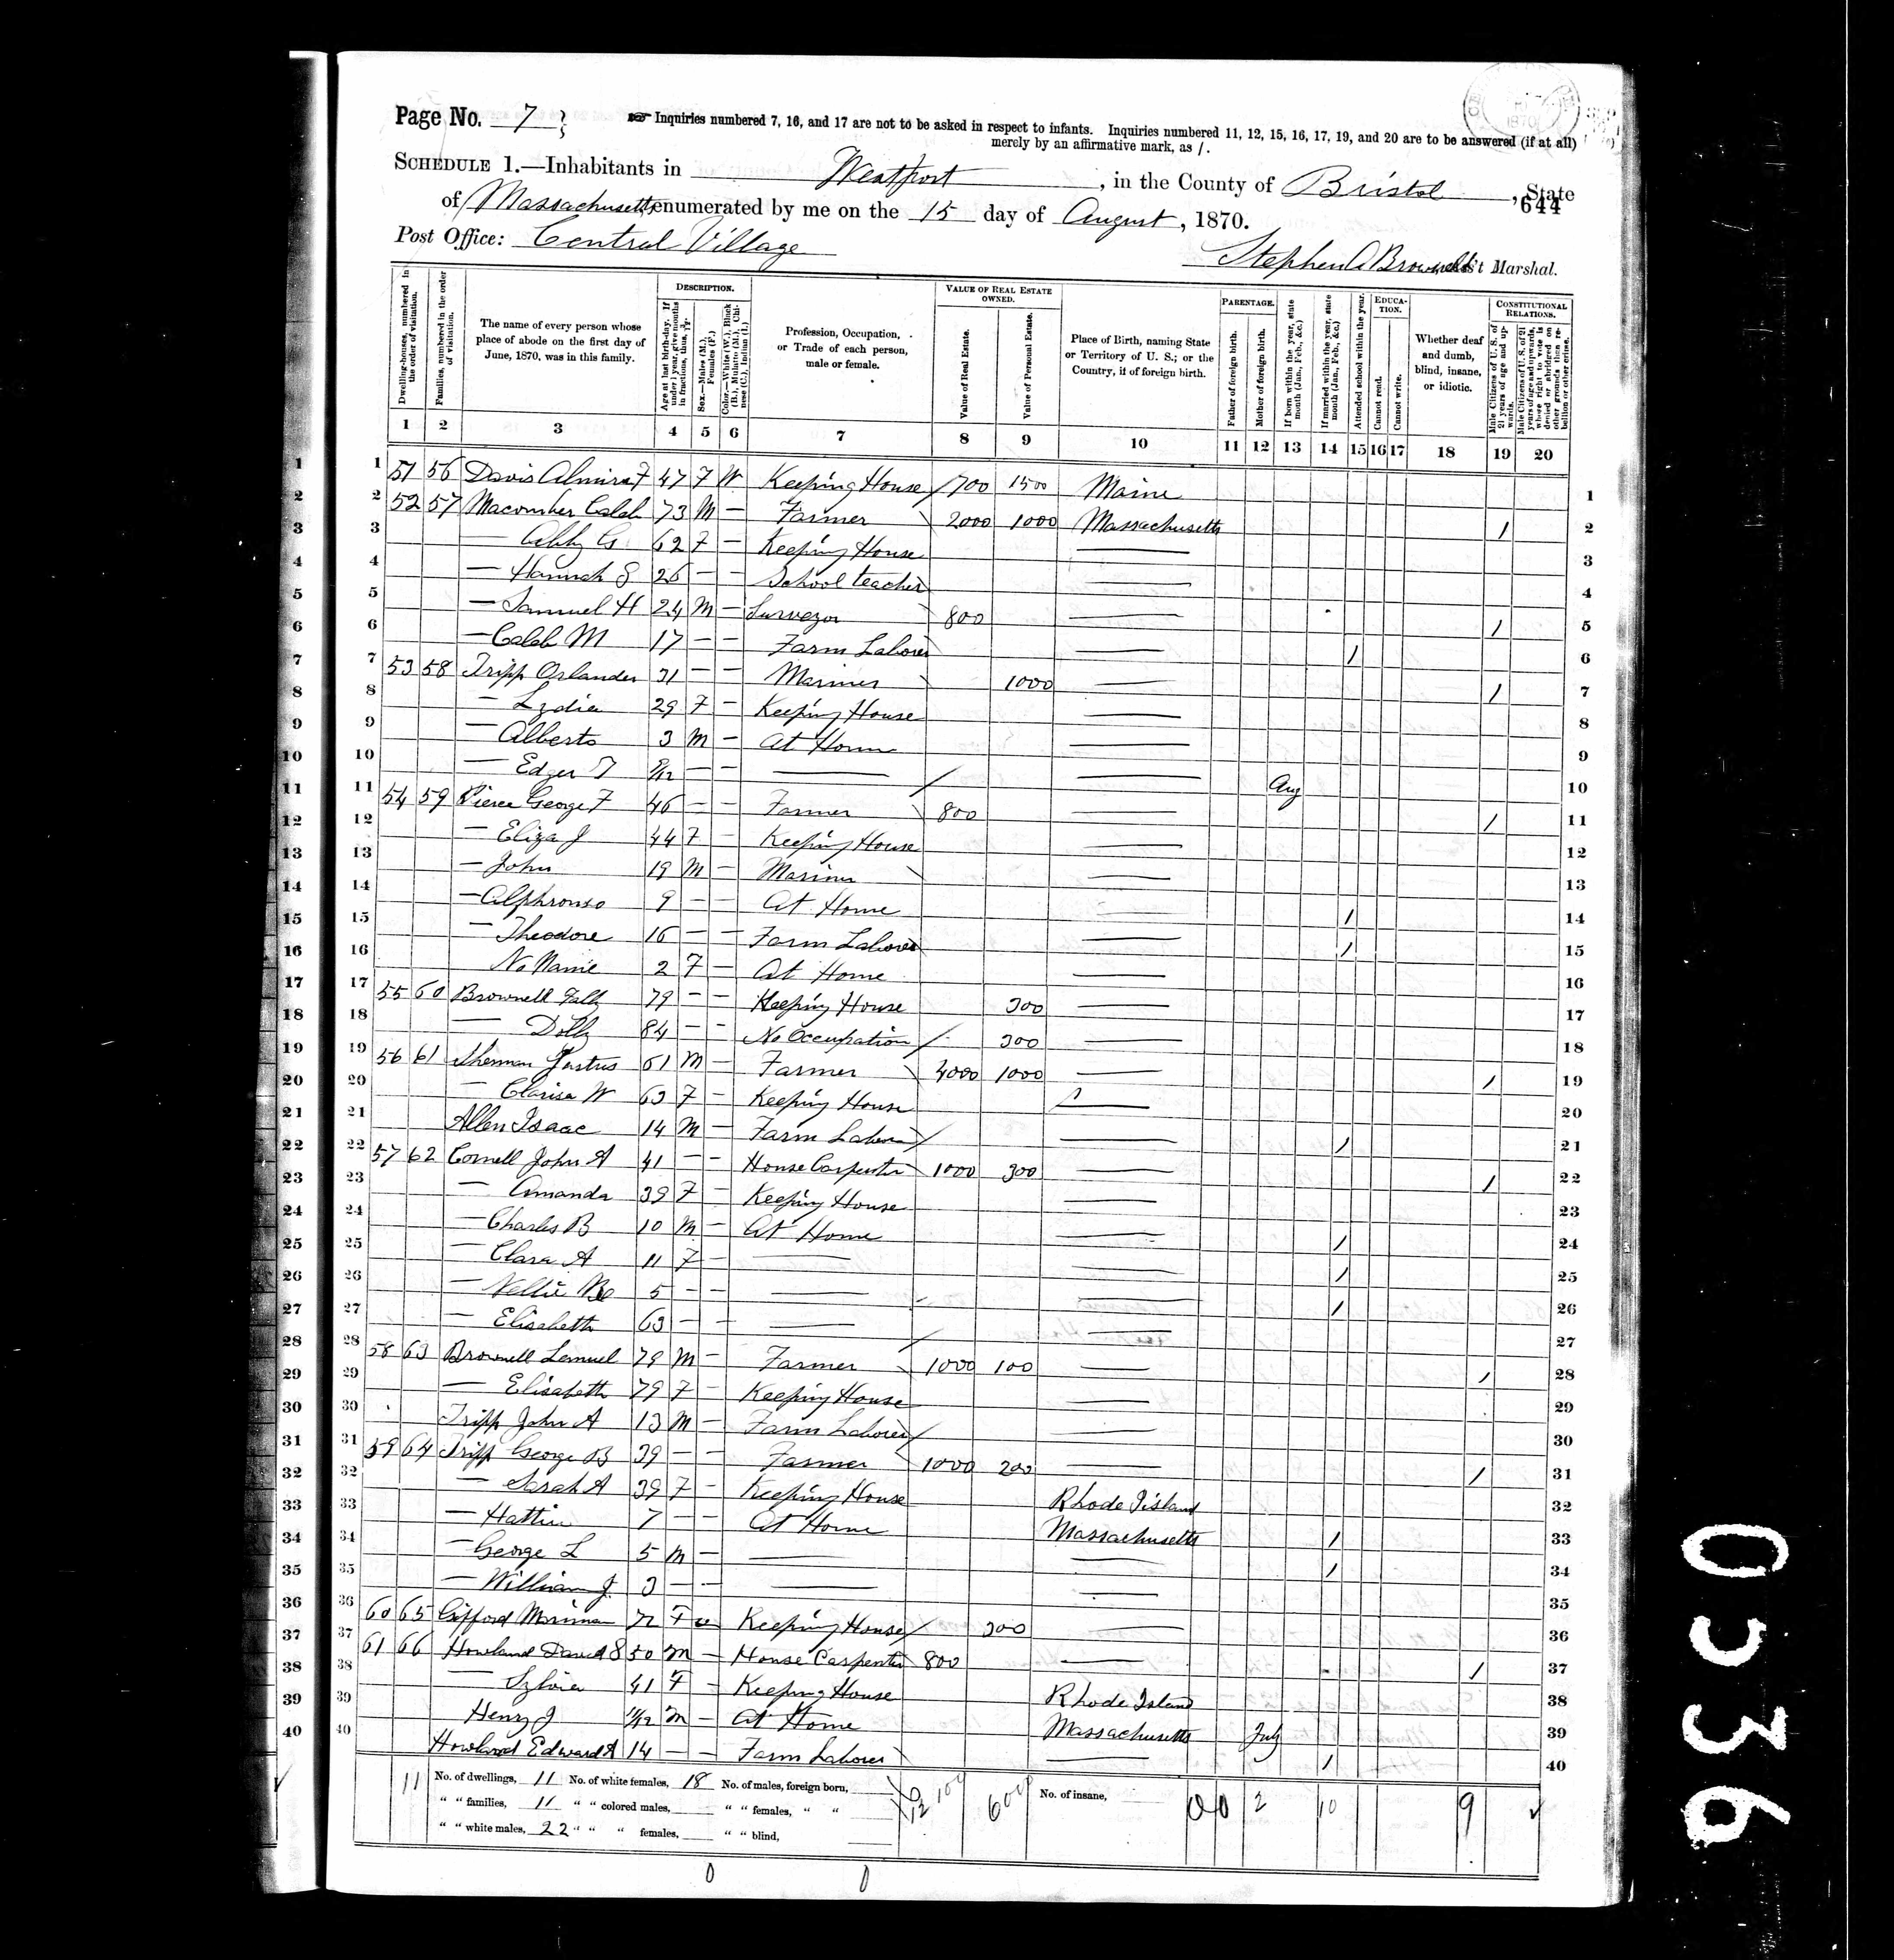 Page No. 7 } ☞ Inquiries numbered 7, 16, and 17 are not to be asked in respect to infants. Inquiries numbered 11, 12, 15, 16, 17, 19, and 20 are to be answered (if at all)
merely by an affirmative mark, as /.
SCHEDULE 1.—Inhabitants in Westport, in the County of Bristol, State
of Massachusetts enumerated by me on the 15 day of August, 1870.
644
Post Office: Central Village
Stephen A Brownell Ass't Marshal.
Dwelling-houses, numbered in the order of visitation.
Families, numbered in the order of visitation.
The name of every person whose place of abode on the first day of June, 1870, was in this family.
DESCRIPTION.
Age at last birth-day. If under 1 year, give months in fractions, thus, 3/12.
Sex.—Males (M.), Females (F.)
Color.—White (W.), Black (B.), Mulatto (M.), Chinese (C.), Indian (I.)
Profession, Occupation, or Trade of each person, male or female.
VALUE OF REAL ESTATE OWNED.
Value of Real Estate.
Value of Personal Estate.
Place of Birth, naming State or Territory of U. S.; or the Country, if of foreign birth.
PARENTAGE.
Father of foreign birth.
Mother of foreign birth.
If born within the year, state month (Jan., Feb., &c.)
If married within the year, state month (Jan., Feb., &c.)
Attended school within the year.
EDUCATION.
Cannot read.
Cannot write.
Whether deaf and dumb, blind, insane, or idiotic.
CONSTITUTIONAL RELATIONS.
Male Citizens of U. S. of 21 years of age and upwards.
Male Citizens of U. S. of 21 years of age and upwards, whose right to vote is denied or abridged on other grounds than rebellion or other crime.
1 2 3 4 5 6 7 8 9 10 11 12 13 14 15 16 17 18 19 20
1 1 51 56 Davis Almira F 47 F W Keeping House / 700 1500 Maine 1
2 2 52 57 Macomber Caleb 73 M — Farmer 2000 1000 Massachusetts / 2
3 3 — Abby G 62 F — Keeping House — 3
4 4 — Hannah S 26 — — School teacher — 4
5 5 — Samuel H 24 M — Surveyor 800 — / 5
6 6 — Caleb M 17 — — Farm Laborer — / 6
7 7 53 58 Tripp Orlander 31 — — Mariner 1000 — / 7
8 8 — Lydia 29 F — Keeping House — 8
9 9 — Alberto 3 M — At Home — 9
10 10 — Edger T 9/12 — — — — Aug 10
11 11 54 59 Pierce George F 46 — — Farmer 800 — / 11
12 12 — Eliza J 44 F — Keeping House — 12
13 13 — John 19 M — Mariner — 13
14 14 — Alphronso 9 — — At Home — / 14
15 15 — Theodore 16 — — Farm Laborer — / 15
16 16 No Name 2 F — At Home — 16
17 17 55 60 Brownell 79 — — Keeping House 300 — 17
18 18 — Dolly 84 — — No Occupation / 300 — 18
19 19 56 61 Sherman Justus 61 M — Farmer 4000 1000 — / 19
20 20 — Clarisa W 63 F — Keeping House — 20
21 21 Allen Isaac 14 M — Farm Laborer / — / 21
22 22 57 62 Cornell John A 41 — — House Carpenter 1000 300 — / 22
23 23 — Amanda 39 F — Keeping House — 23
24 24 — Charles B 10 M — At Home — / 24
25 25 — Clara A 11 F — — — / 25
26 26 — Nellie 5 — — — — / 26
27 27 — Elisabeth 63 — — — — 27
28 28 58 63 Brownell Lemuel 79 M — Farmer 1000 100 — / 28
29 29 — Elisabeth 79 F — Keeping House — 29
30 30 Tripp John A 13 M — Farm Laborer / — 30
31 31 59 64 Tripp George B 39 — — Farmer 1000 200 — / 31
32 32 — Sarah A 39 F — Keeping House Rhode Island 32
33 33 — Hattie 7 — — At Home Massachusetts / 33
34 34 — George L 5 M — — — / 34
35 35 — William J 3 — — — — 35
36 36 60 65 Gifford 72 F w Keeping House / 300 — 36
37 37 61 66 Howland David S 50 M — House Carpenter 800 — / 37
38 38 — Sylvia 41 F — Keeping House Rhode Island 38
39 39 Henry J 11/12 M — At Home Massachusetts July 39
40 40 Howland Edward A 14 — — Farm Laborer — / 40
11 No. of dwellings, 11 No. of white females, 18 No. of males, foreign born, No. of insane, 0 0 2 10 9
" " families, 11 " " colored males, " " females, " "
" " white males, 22 " " " females, " " blind,
0 0
0536